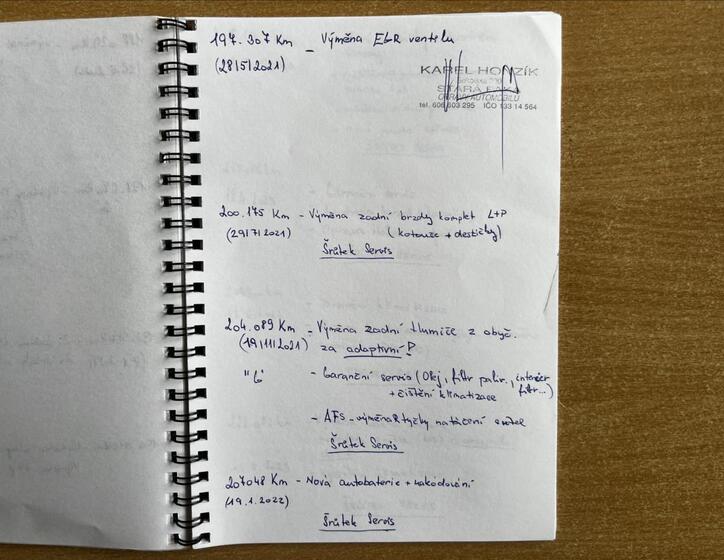 197.307 Km - Výměna EGR ventilu
(28/5/2021)
KAREL HOMZÍK
STARÁ PAKA
OPRAVY AUTOMOBILŮ
tel. 606 603 295 IČO 133 14 564
200.175 Km - Výměna zadní brzdy komplet L+P
(29/7/2021) (kotouče + destičky)
Šrůtek Servis
204.089 Km - Výměna zadní tlumiče z obyč.
(19/11/2021) za adaptivní!
- Garanční servis (Olej, filtr paliv., interiér
+ čištění klimatizace filtr...)
- AFS - výměna tyčky natáčení světel
Šrůtek Servis
207048 Km - Nová autobaterie + nakódování
(19.1.2022)
Šrůtek Servis